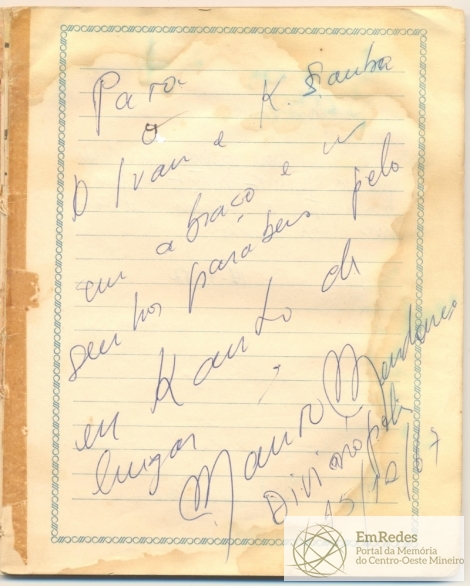 Para
O Ivan e K. Samba
um abraço e
senhor parabens pelo
en Kanto de
lugar
Mauro Mendonça
Divinópolis
15/12/87
EmRedes
Portal da Memória
do Centro-Oeste Mineiro